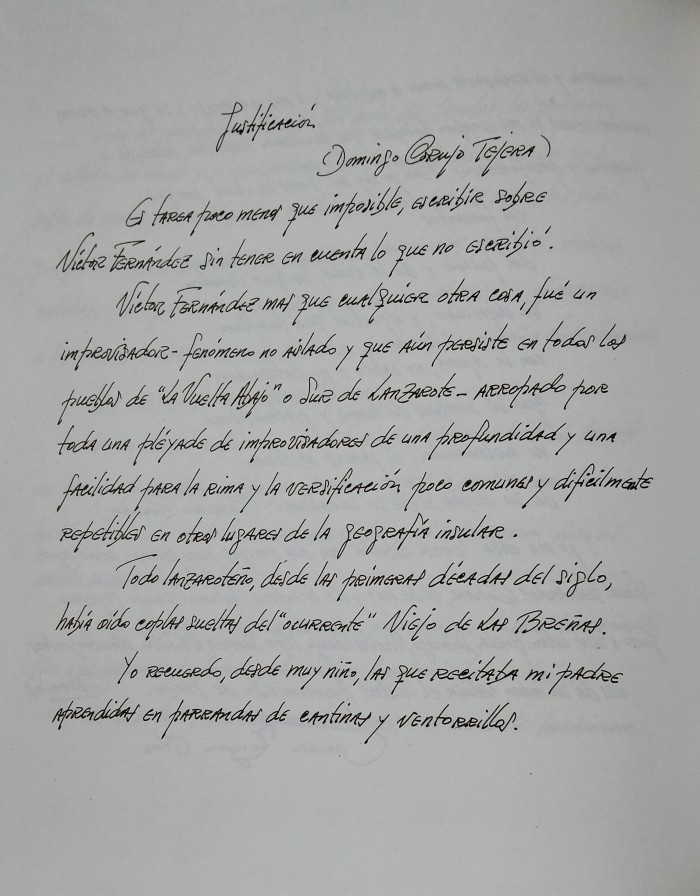 Justificación
(Domingo Corujo Tejera)
Es tarea poco menos que imposible, escribir sobre
Víctor Fernández sin tener en cuenta lo que no escribió.
Víctor Fernández mas que cualquier otra cosa, fué un
improvisador- fenómeno no aislado y que aún persiste en todos los
pueblos de "La Vuelta Abajo" o Sur de Lanzarote- arropado por
toda una pléyade de improvisadores de una profundidad y una
facilidad para la rima y la versificación poco comunes y dificilmente
repetibles en otros lugares de la geografía insular.
Todo lanzaroteño, desde las primeras décadas del siglo,
había oído coplas sueltas del "ocurrente" Viejo de Las Breñas.
Yo recuerdo, desde muy niño, las que recitaba mi padre
aprendidas en parrandas de cantinas y ventorrillos.